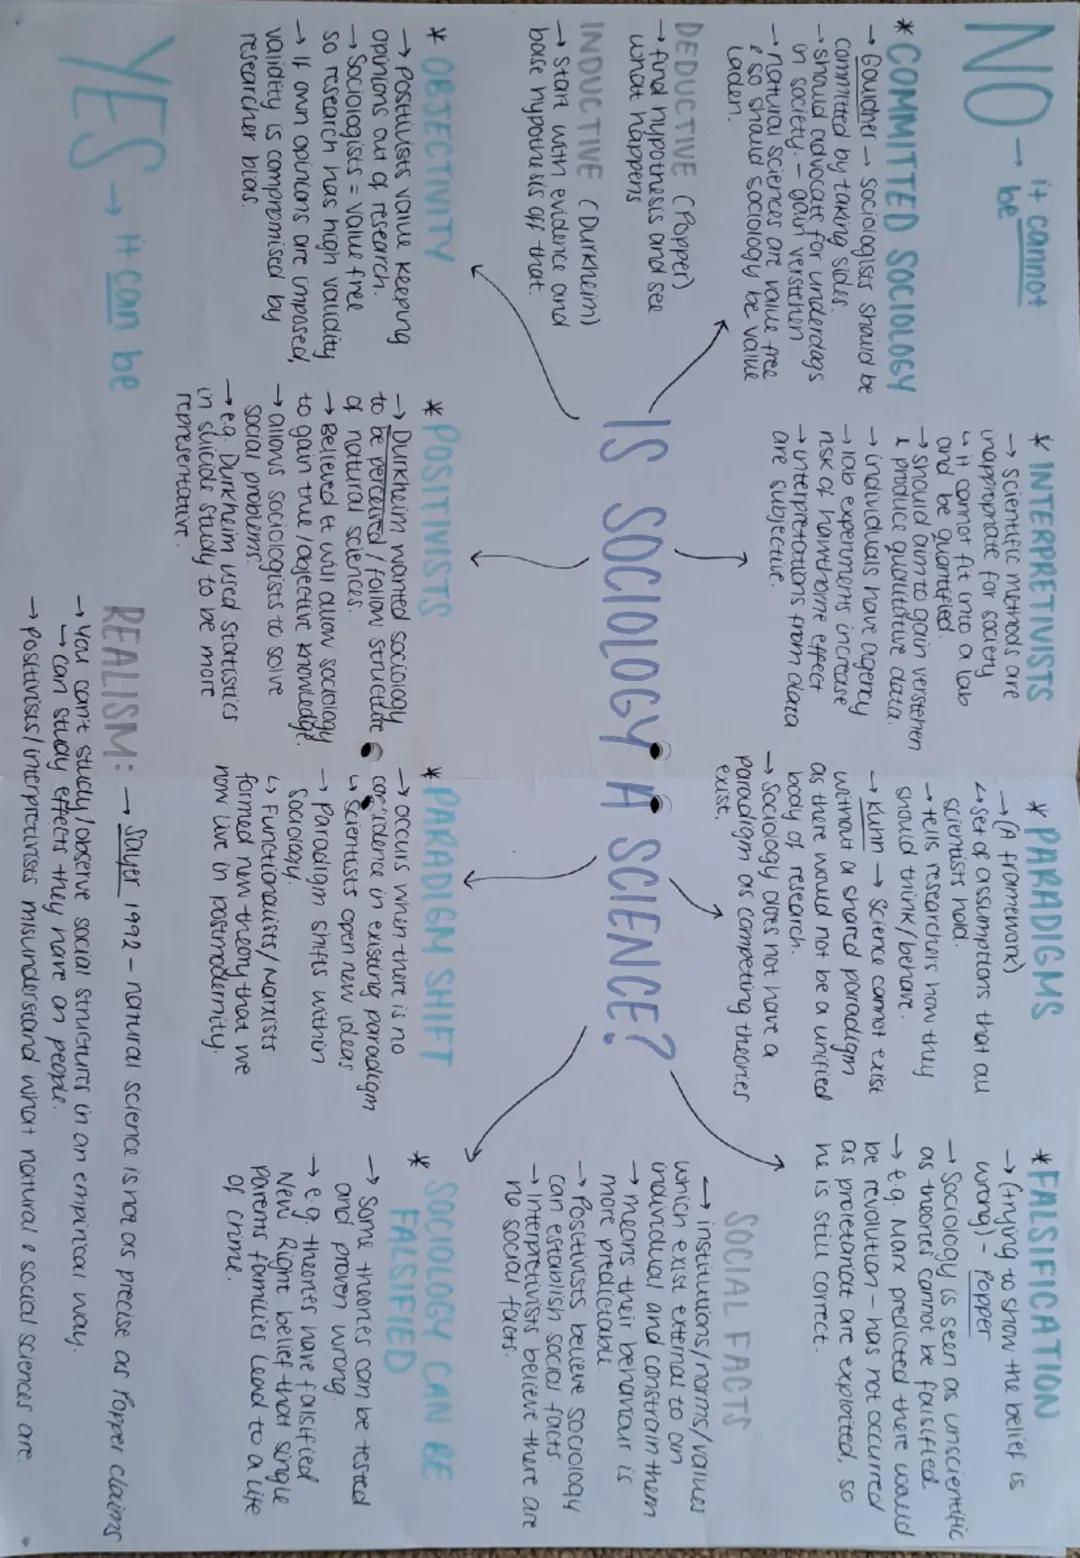 NO → it cannot
be
* COMMITTED SOCIOLOGY
→ Gouldner → sociologists should be
committed by taking sides.
→ should advocate for underdogs
in society. – gain verstehen
→ natural sciences are value free
& so should sociology be value
laden.
* INTERPRETIVISTS
→ scientific methods are
inappropriate for society
↳ it cannot fit into a lab
and be quantified.
→ should aim to gain verstehen
& produce qualitative data.
→ individuals have agency
→ lab experiments increase
risk of hawthorne effect
→ interpretations from data
are subjective.
* PARADIGMS
→ (A framework)
↳ set of assumptions that all
scientists hold.
→ tells researchers how they
should think/behave.
→ Kuhn → science cannot exist
without a shared paradigm
as there would not be a unified
body of research.
→ Sociology does not have a
paradigm as competing theories
exist.
* FALSIFICATION
→ (trying to show the belief is
wrong) – Popper
→ Sociology is seen as unscientific
as theories cannot be falsified.
→ e.g. Marx predicted there would
be revolution – has not occurred
as proletariat are exploited, so
he is still correct.
DEDUCTIVE (Popper)
→ find hypothesis and see
what happens
INDUCTIVE (Durkheim)
→ start with evidence and
base hypothesis off that.
IS SOCIOLOGY A SCIENCE?
SOCIAL FACTS
→ institutions/norms/values
which exist external to an
individual and constrain them
→ means their behaviour is
more predictable
→ Positivists believe sociology
can establish social facts
→ Interpretivists believe there are
no social facts.
* OBJECTIVITY
→ Positivists value keeping
opinions out of research.
→ Sociologists = value free
so research has high validity
→ If own opinions are imposed,
validity is compromised by
researcher bias.
* POSITIVISTS
→ Durkheim wanted sociology
to be perceived/follow structure
of natural sciences.
→ Believed it will allow sociology
to gain true/objective knowledge.
→ allows sociologists to solve
social problems.
→ e.g. Durkheim used statistics
in suicide study to be more
representative.
* PARADIGM SHIFT
→ occurs when there is no
confidence in existing paradigm
↳ Scientists open new ideas
→ Paradigm shifts within
Sociology.
↳ Functionalists/Marxists
formed new theory that we
now live in postmodernity.
* SOCIOLOGY CAN BE
FALSIFIED
→ Some theories can be tested
and proven wrong.
→ e.g. theorists have falsified
New Right belief that single
parents families lead to a life
of crime.
YES → it can be
REALISM: → Sayer 1992 – natural science is not as precise as Popper claims
→ You can't study/observe social structures in an empirical way.
→ can study effects they have on people.
→ Positivists/interpretivists misunderstand what natural & social sciences are.